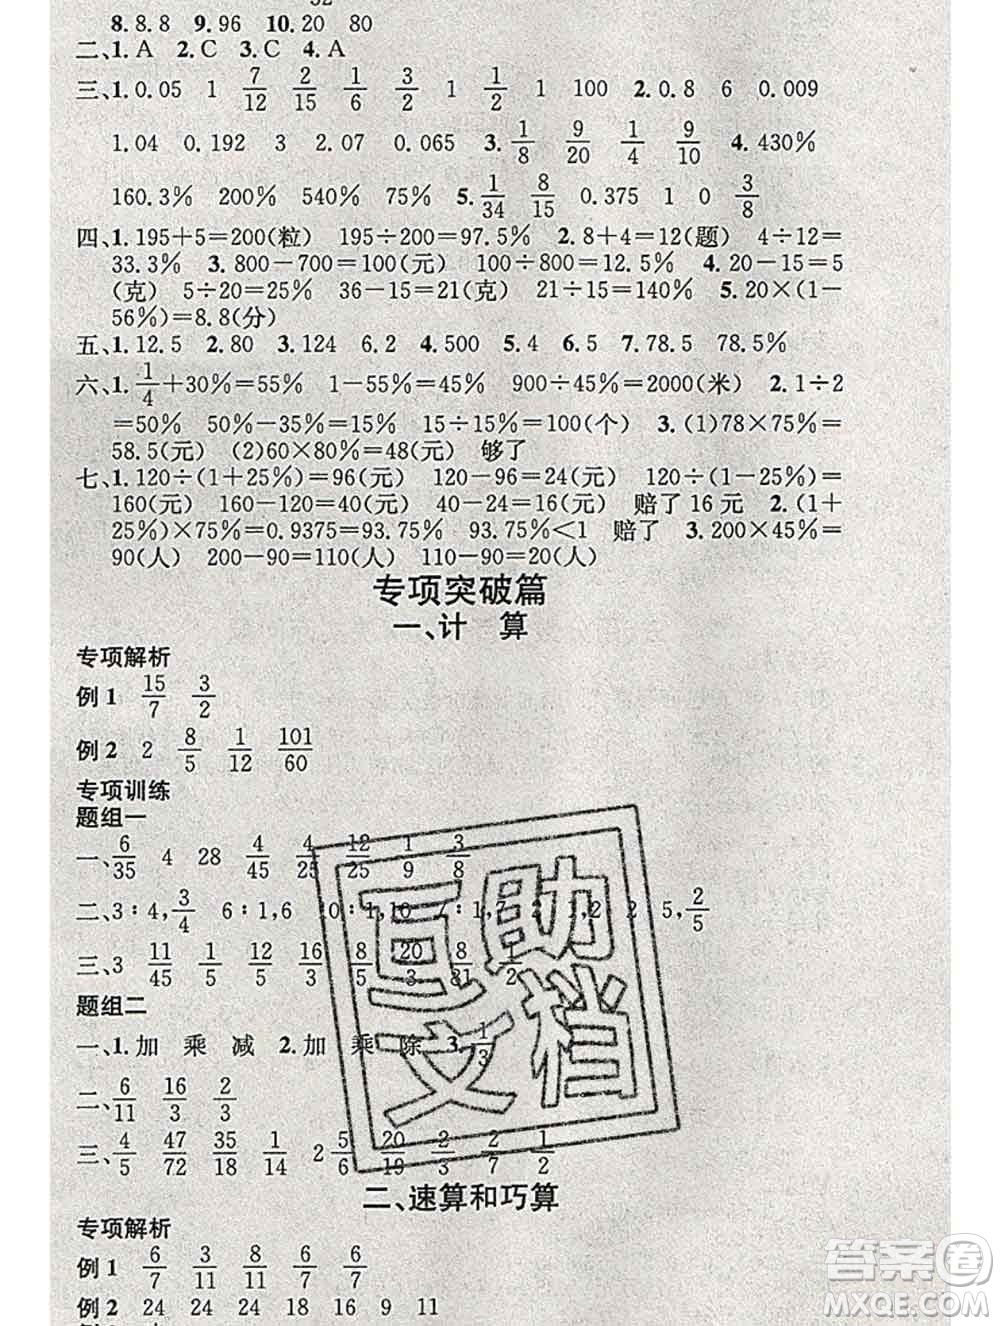 52
8. 8.8 9. 96 10. 20 80
二、1. A 2. C 3. C 4. A
三、1. 0.05 1 7/12 2/15 1/6 3/2 1 1/2 1 100 2. 0.8 6 0.009
1.04 0.192 3 2.07 0.065 3. 1/8 9/20 1/4 9/10 4. 430%
160.3% 200% 540% 75% 5. 1/34 8/15 0.375 1 0 3/8
四、1. 195+5=200(粒) 195÷200=97.5% 2. 8+4=12(题) 4÷12=
33.3% 3. 800-700=100(元) 100÷800=12.5% 4. 20-15=5
(克) 5÷20=25% 36-15=21(克) 21÷15=140% 5. 20×(1-
56%)=8.8(分)
五、1. 12.5 2. 80 3. 124 6.2 4. 500 5. 4 6. 5 7. 78.5 78.5%
六、1. 1/4+30%=55% 1-55%=45% 900÷45%=2000(米) 2. 1÷2
=50% 50%-35%=15% 15÷15%=100(个) 3. (1)78×75%=
58.5(元) (2)60×80%=48(元) 够了
七、1. 120÷(1+25%)=96(元) 120-96=24(元) 120÷(1-25%)=
160(元) 160-120=40(元) 40-24=16(元) 赔了 16 元 2. (1+
25%)×75%=0.9375=93.75% 93.75%<1 赔了 3. 200×45%=
90(人) 200-90=110(人) 110-90=20(人)
专项突破篇
一、计 算
专项解析
例 1 15/7 3/2
例 2 2 8/5 1/12 101/60
专项训练
题组一
一、6/35 4 28 4/45 4/25 12/25 1/9 3/8
二、3∶4,3/4 6∶1,6 10∶1,10 7∶1,7 2 1,2 2 5,2/5
三、3 11/45 1/5 20/21 100/101 16/9 8/5 20/3 8/81 1/2
题组二
一、1. 加 乘 减 2. 加 乘 除 3. 1/3
二、6/11 16/3 2/3
三、4/5 47/72 35/18 1/14 2 5/6 20/19 2/3 2/7 1/2
二、速算和巧算
专项解析
例 1 6/7 3/11 8/11 6/7 6/7
例 2 24 24 24 18 16 9 11
互助文档
答案圈
MXQE.COM